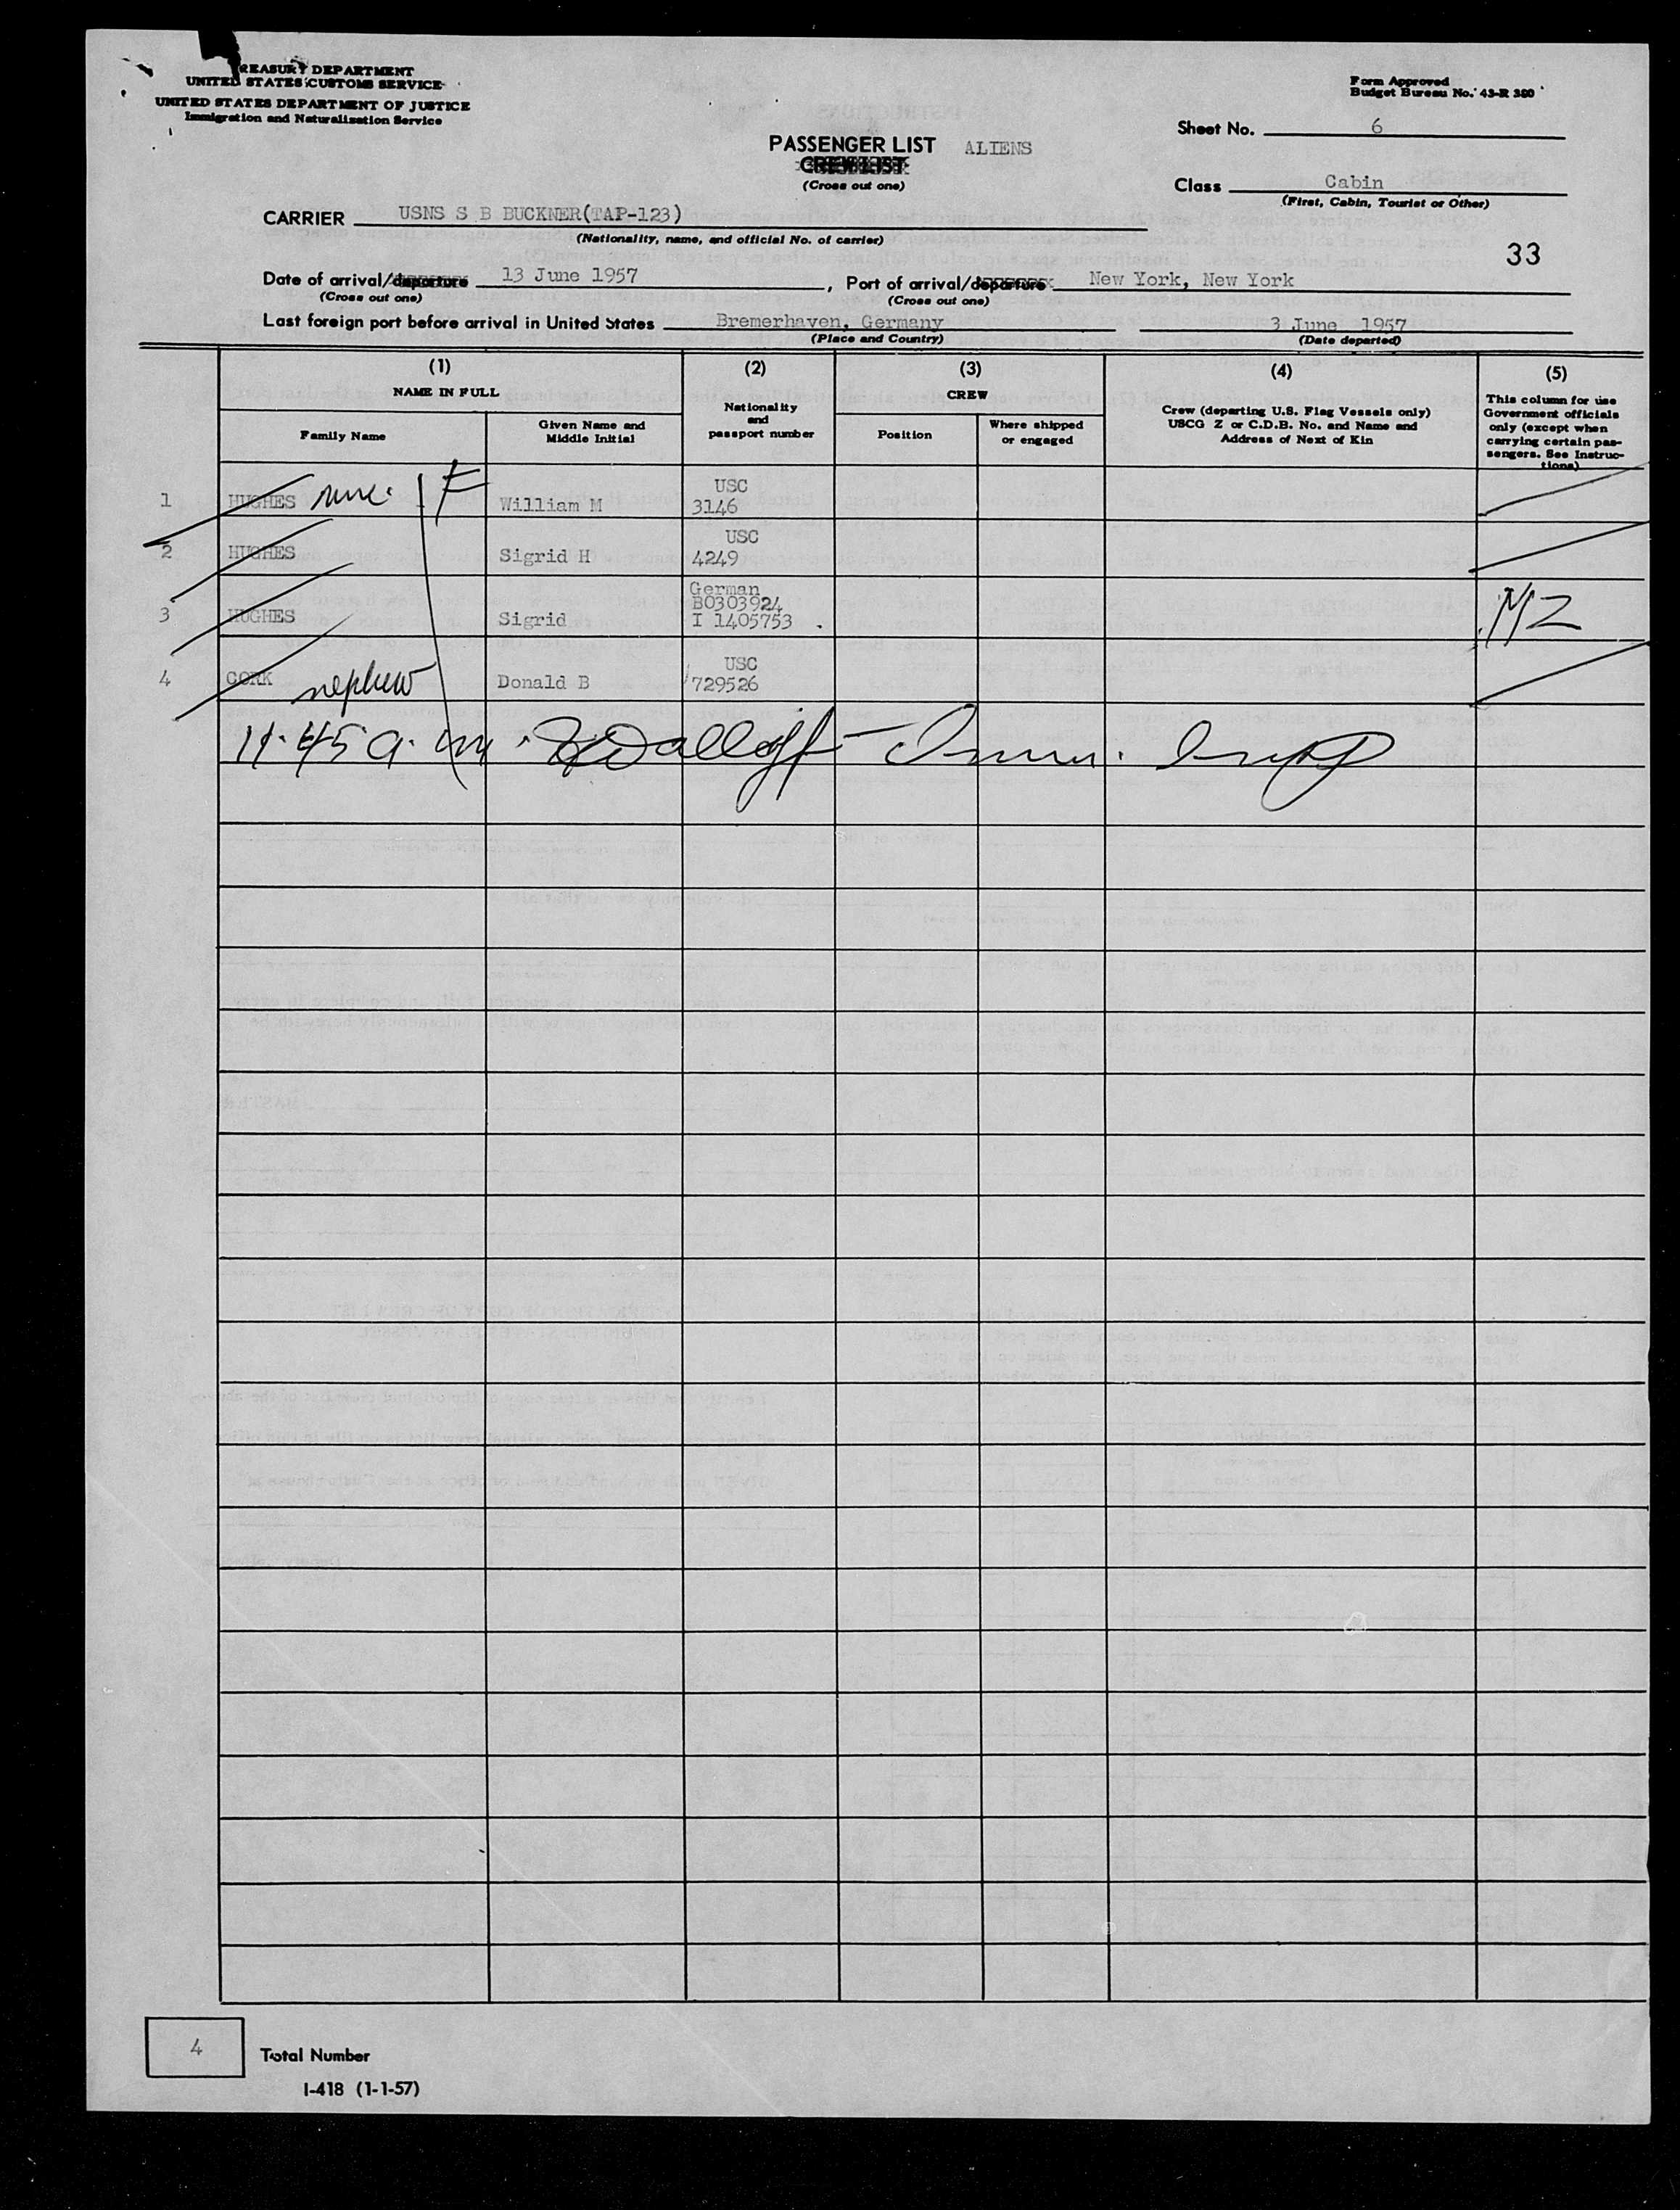 TREASURY DEPARTMENT
UNITED STATES CUSTOMS SERVICE
UNITED STATES DEPARTMENT OF JUSTICE
Immigration and Naturalization Service
Form Approved
Budget Bureau No. 43-R 380
Sheet No. 6
PASSENGER LIST ALIENS
CREW LIST
(Cross out one)
Class Cabin
(First, Cabin, Tourist or Other)
CARRIER USNS S B BUCKNER(TAP-123)
(Nationality, name, and official No. of carrier)
33
Date of arrival/departure 13 June 1957, Port of arrival/departure New York, New York
(Cross out one) (Cross out one)
Last foreign port before arrival in United States Bremerhaven, Germany 3 June 1957
(Place and Country) (Date departed)
(1) (2) (3) (4) (5)
NAME IN FULL
Family Name
Given Name and
Middle Initial
Nationality
and
passport number
CREW
Position
Where shipped
or engaged
Crew (departing U.S. Flag Vessels only)
USCG Z or C.D.B. No. and Name and
Address of Next of Kin
This column for use
Government officials
only (except when
carrying certain pas-
sengers. See Instruc-
tions)
USC
1 HUGHES William M 3146
USC
2 HUGHES Sigrid H 4249
German
B0303924
3 HUGHES Sigrid I 1405753 . MZ
USC
4 CORK nephew Donald B 729526
11.45 a.m.
4 Total Number
I-418 (1-1-57)